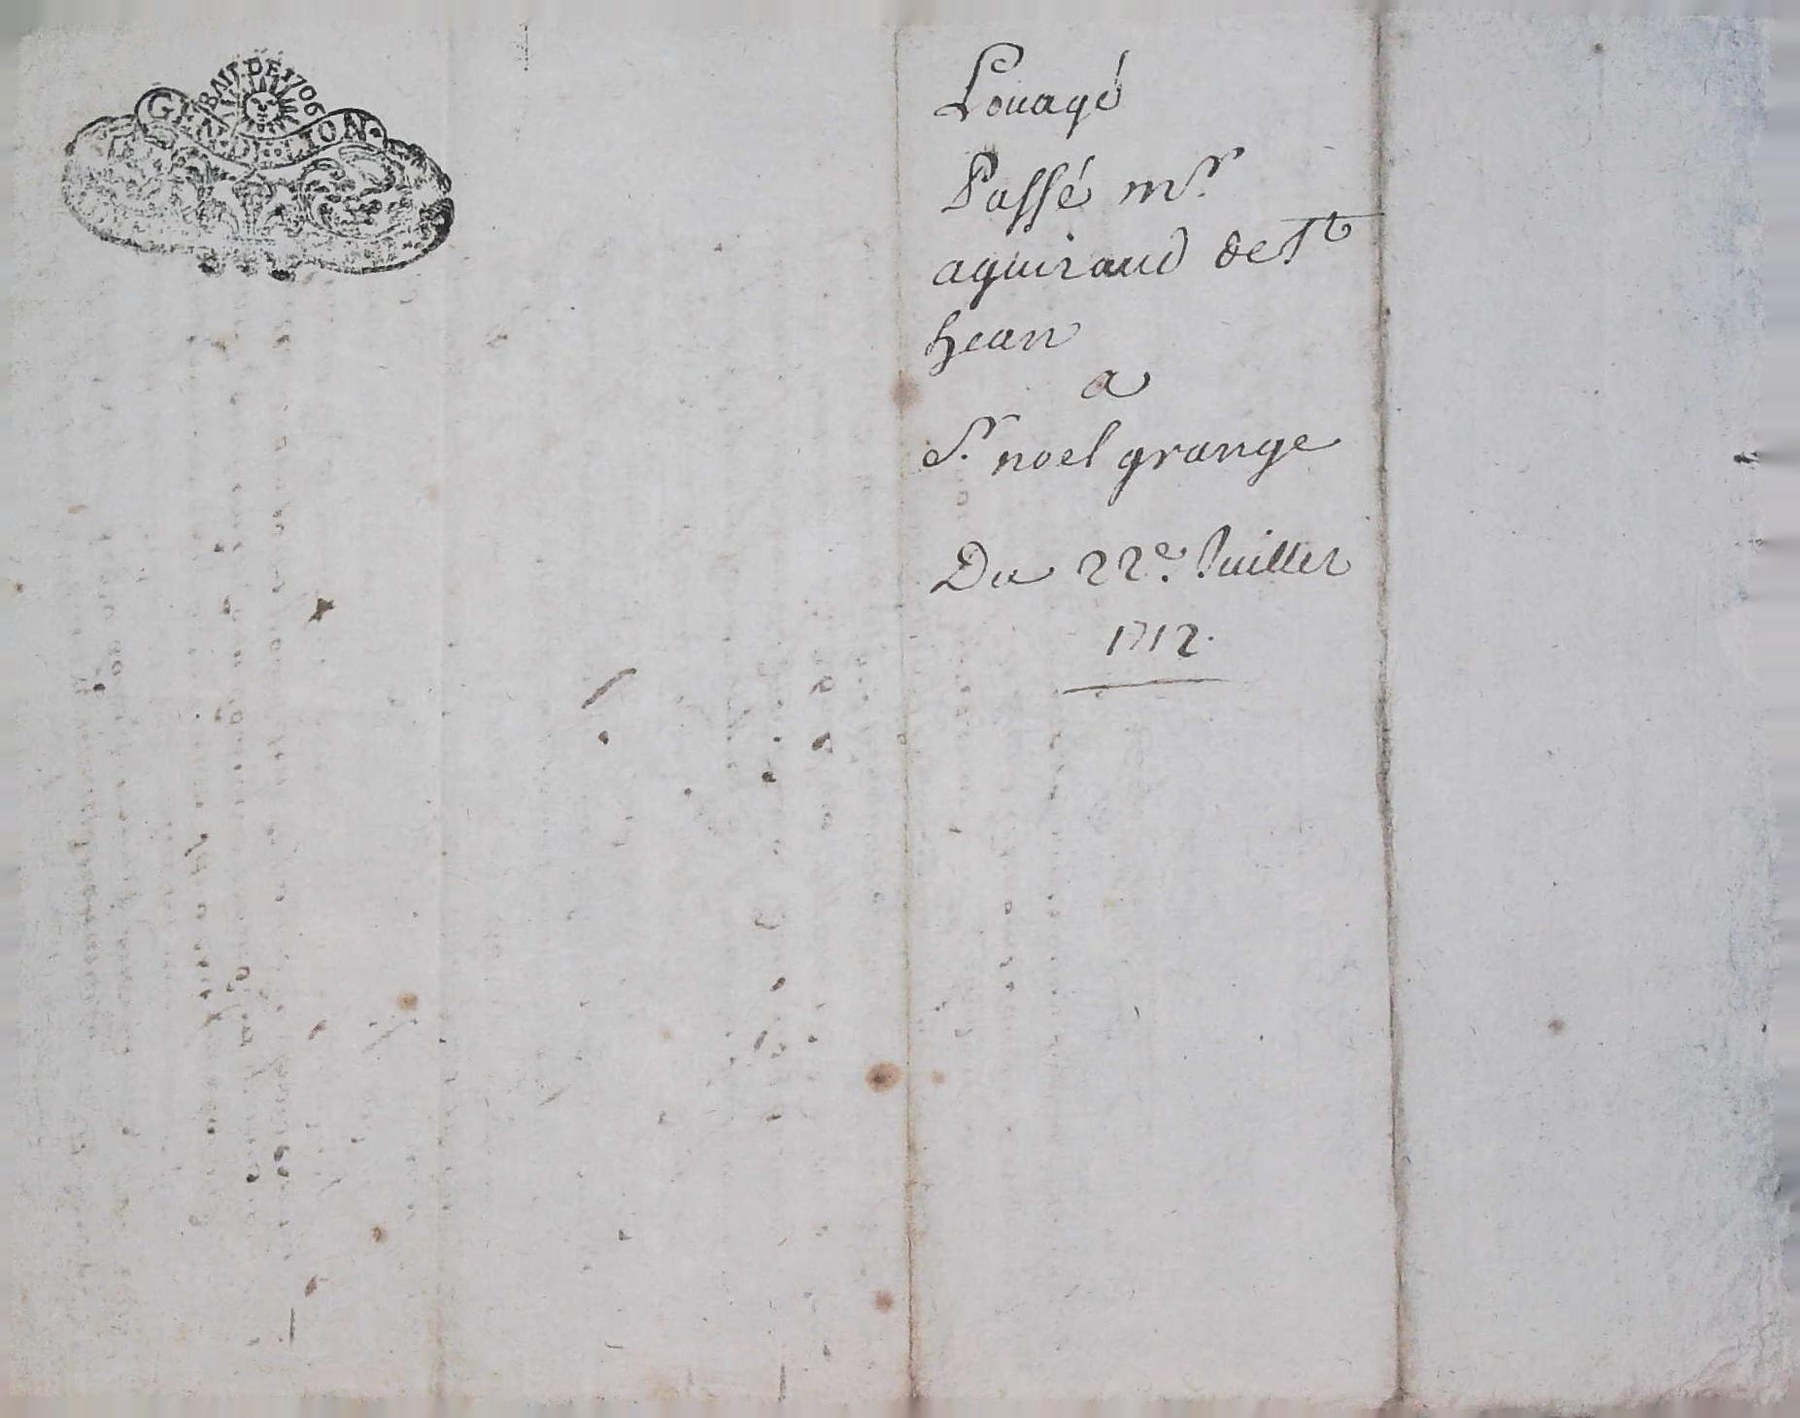 BAIL DE 1706
GEN · DE · LION ·
Louagé
Passé mr
aguiraud de St
hean
a
Sr. noel grange
Du 22e. Juillet
1712.